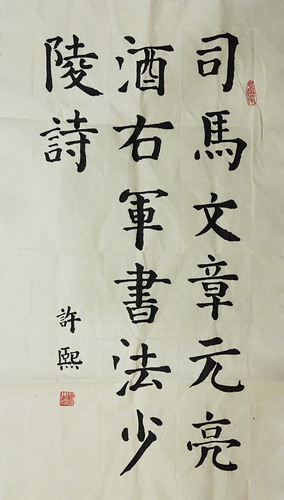 司馬文章元亮
酒右軍書法少
陵詩
許熙